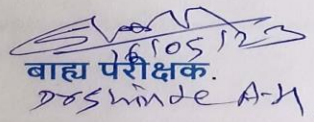 16/05/23
बाह्य परीक्षक.
Dr Shinde A-H